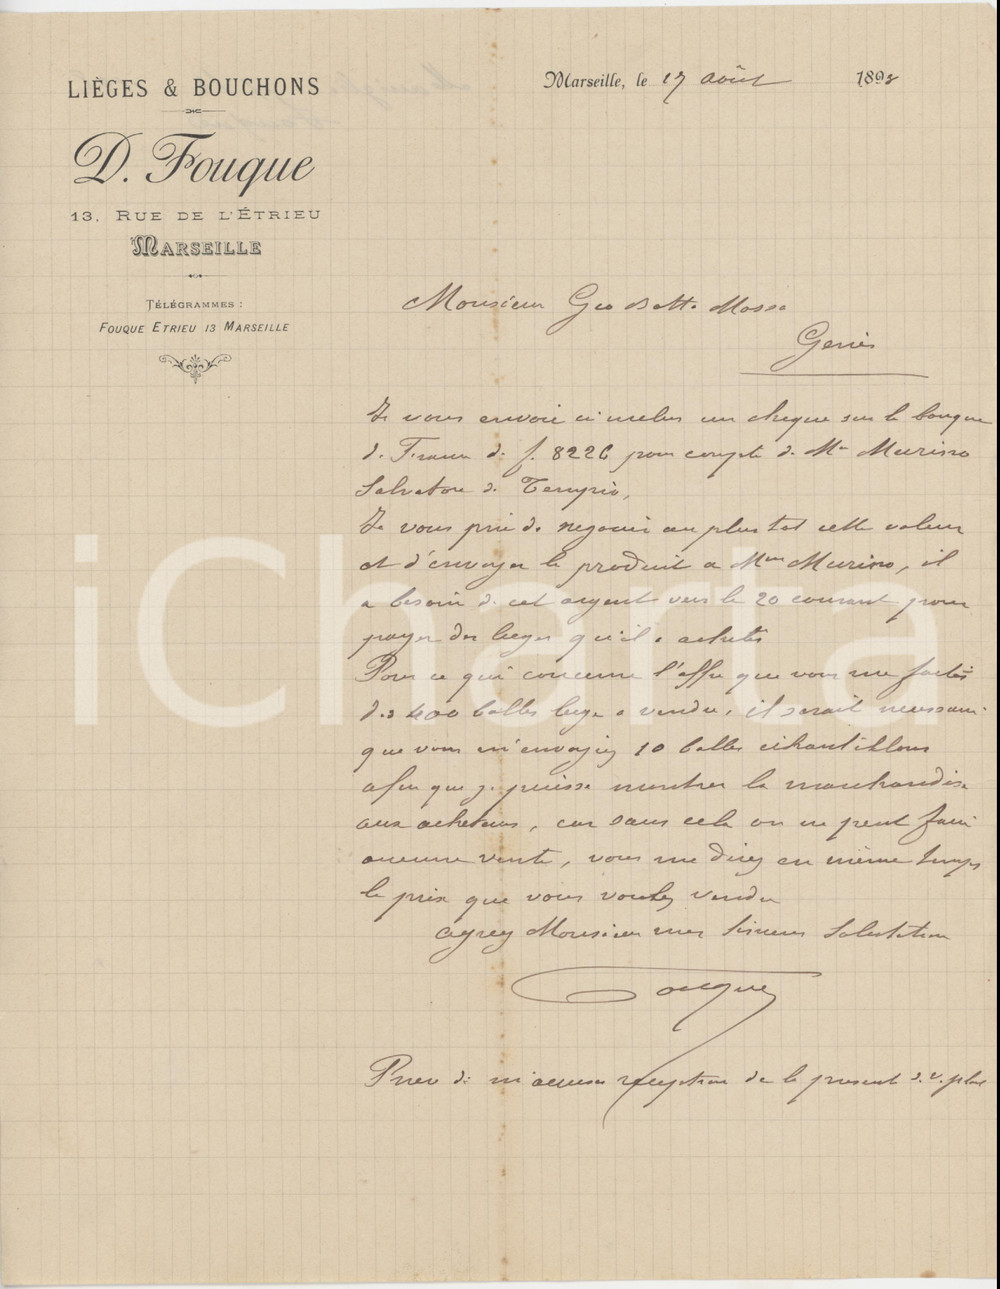 LIÈGES & BOUCHONS
D. Fouque
13, RUE DE L'ÉTRIEU
MARSEILLE
TÉLÉGRAMMES :
FOUQUE ETRIEU 13 MARSEILLE
Marseille, le 17 août 1898
Monsieur Gio Batta Mossa
Genès
Je vous envoie ci inclus un cheque sur la banque
de France de f. 8226 pour compte de Mr Murino
Salvatore de Tempio,
Je vous prie de negocier au plus tot cette valeur
et d'envoyer le produit a Mr Murino, il
a besoin de cet argent vers le 20 courant pour
payer des lieges qu'il a achetés
Pour ce qui concerne l'offre que vous me faites
des 400 balles liege a vendre, il serait necessaire
que vous m'envoyiez 10 balles echantillons
afin que je puisse montrer la marchandise
aux acheteurs, car sans cela on ne peut faire
aucune vente, vous me direz en même temps
le prix que vous voulez vendre
agreez Monsieur mes sinceres Salutations
Fouque
Priere de m'accuser reception de la present s. v. plait
iCharta